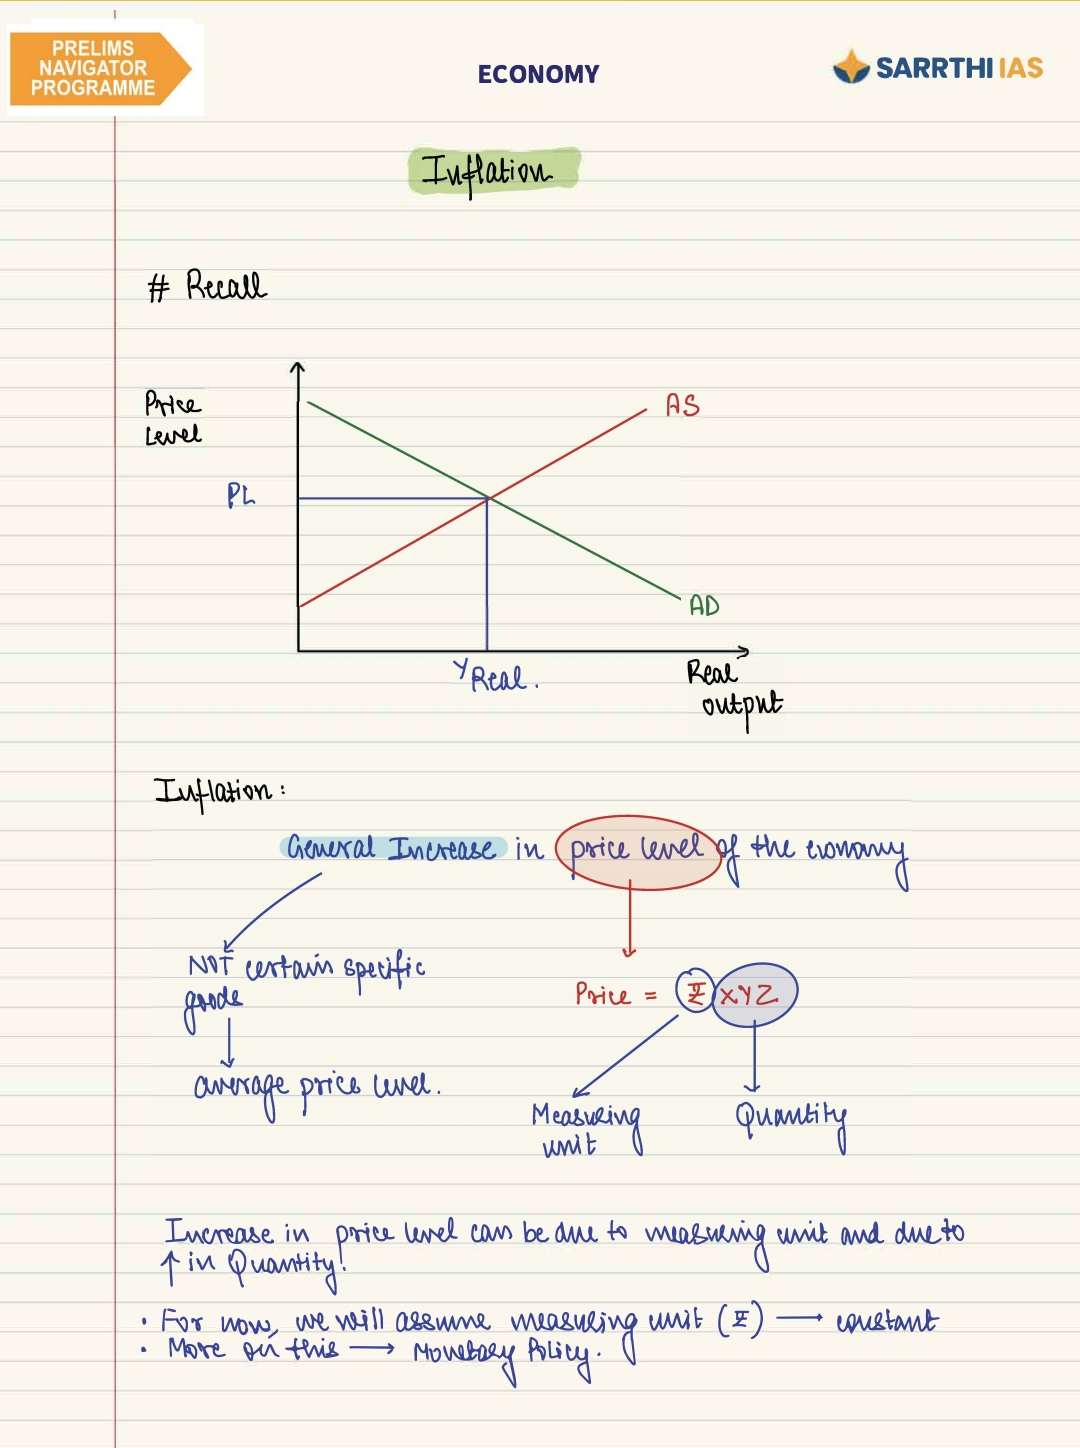 PRELIMS
NAVIGATOR
PROGRAMME
ECONOMY
SARRTHI IAS
Inflation
# Recall
Price
Level
AS
PL
AD
Y Real.
Real
output
Inflation:
General Increase in price level of the economy
NOT certain specific
goods
Price = XYZ
average price level.
Measuring
unit
Quantity
Increase in price level can be due to measuring unit and due to
↑ in Quantity!
• For now, we will assume measuring unit ( ) → constant
• More on this → Monetary Policy.